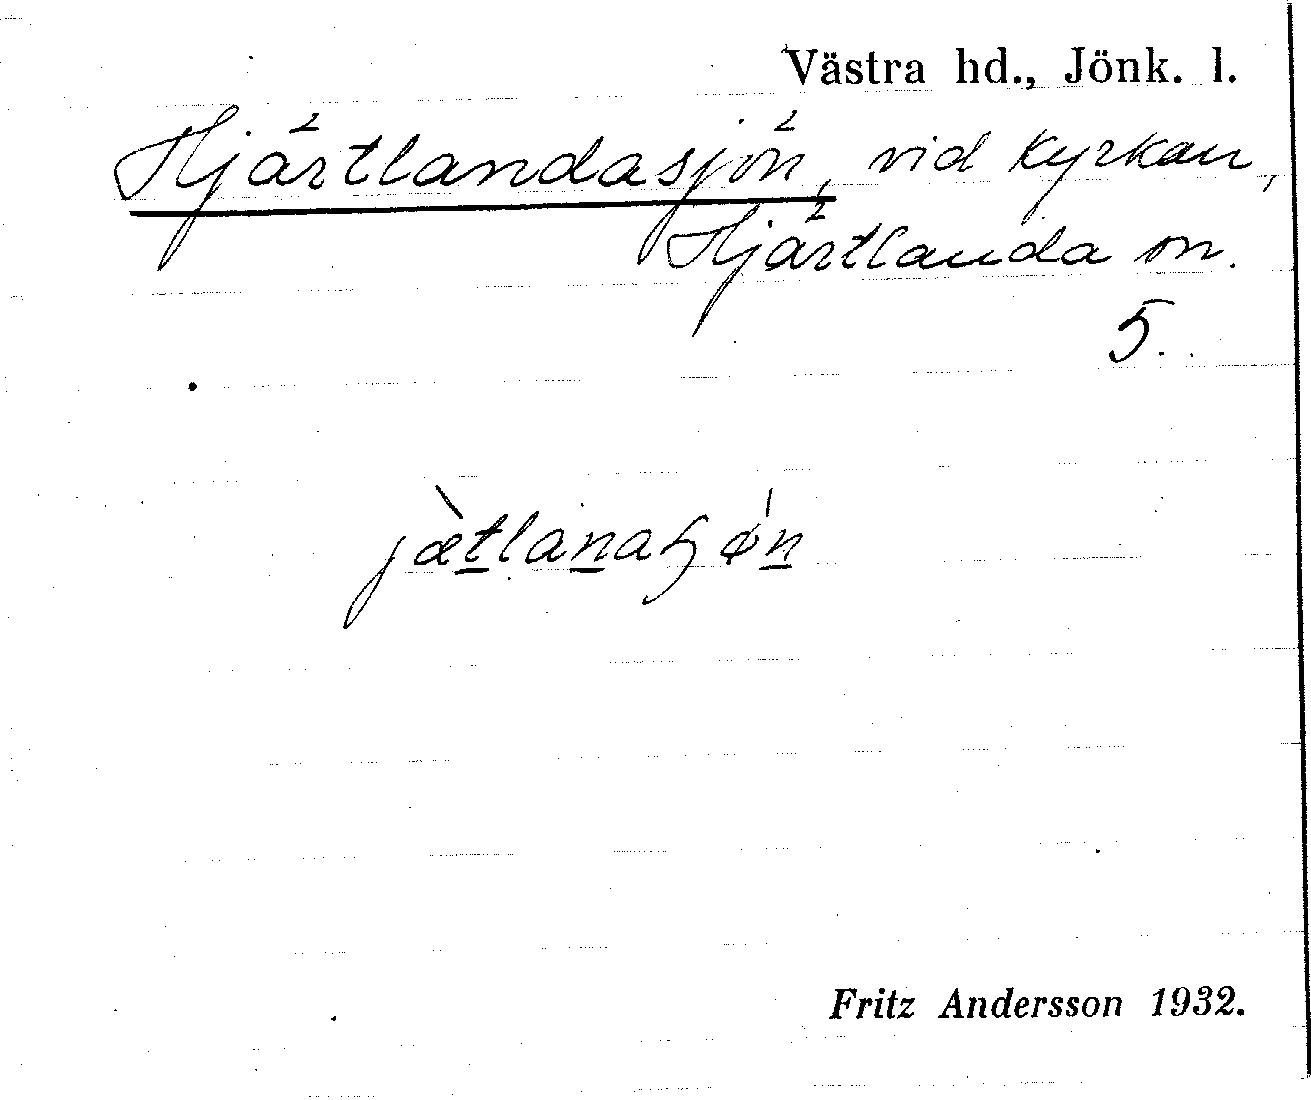 Västra hd., Jönk. l.
Hjärtlandasjön, vid kyrkan,
Hjärtlanda sn.
5.
jætlanaɧøn
Fritz Andersson 1932.